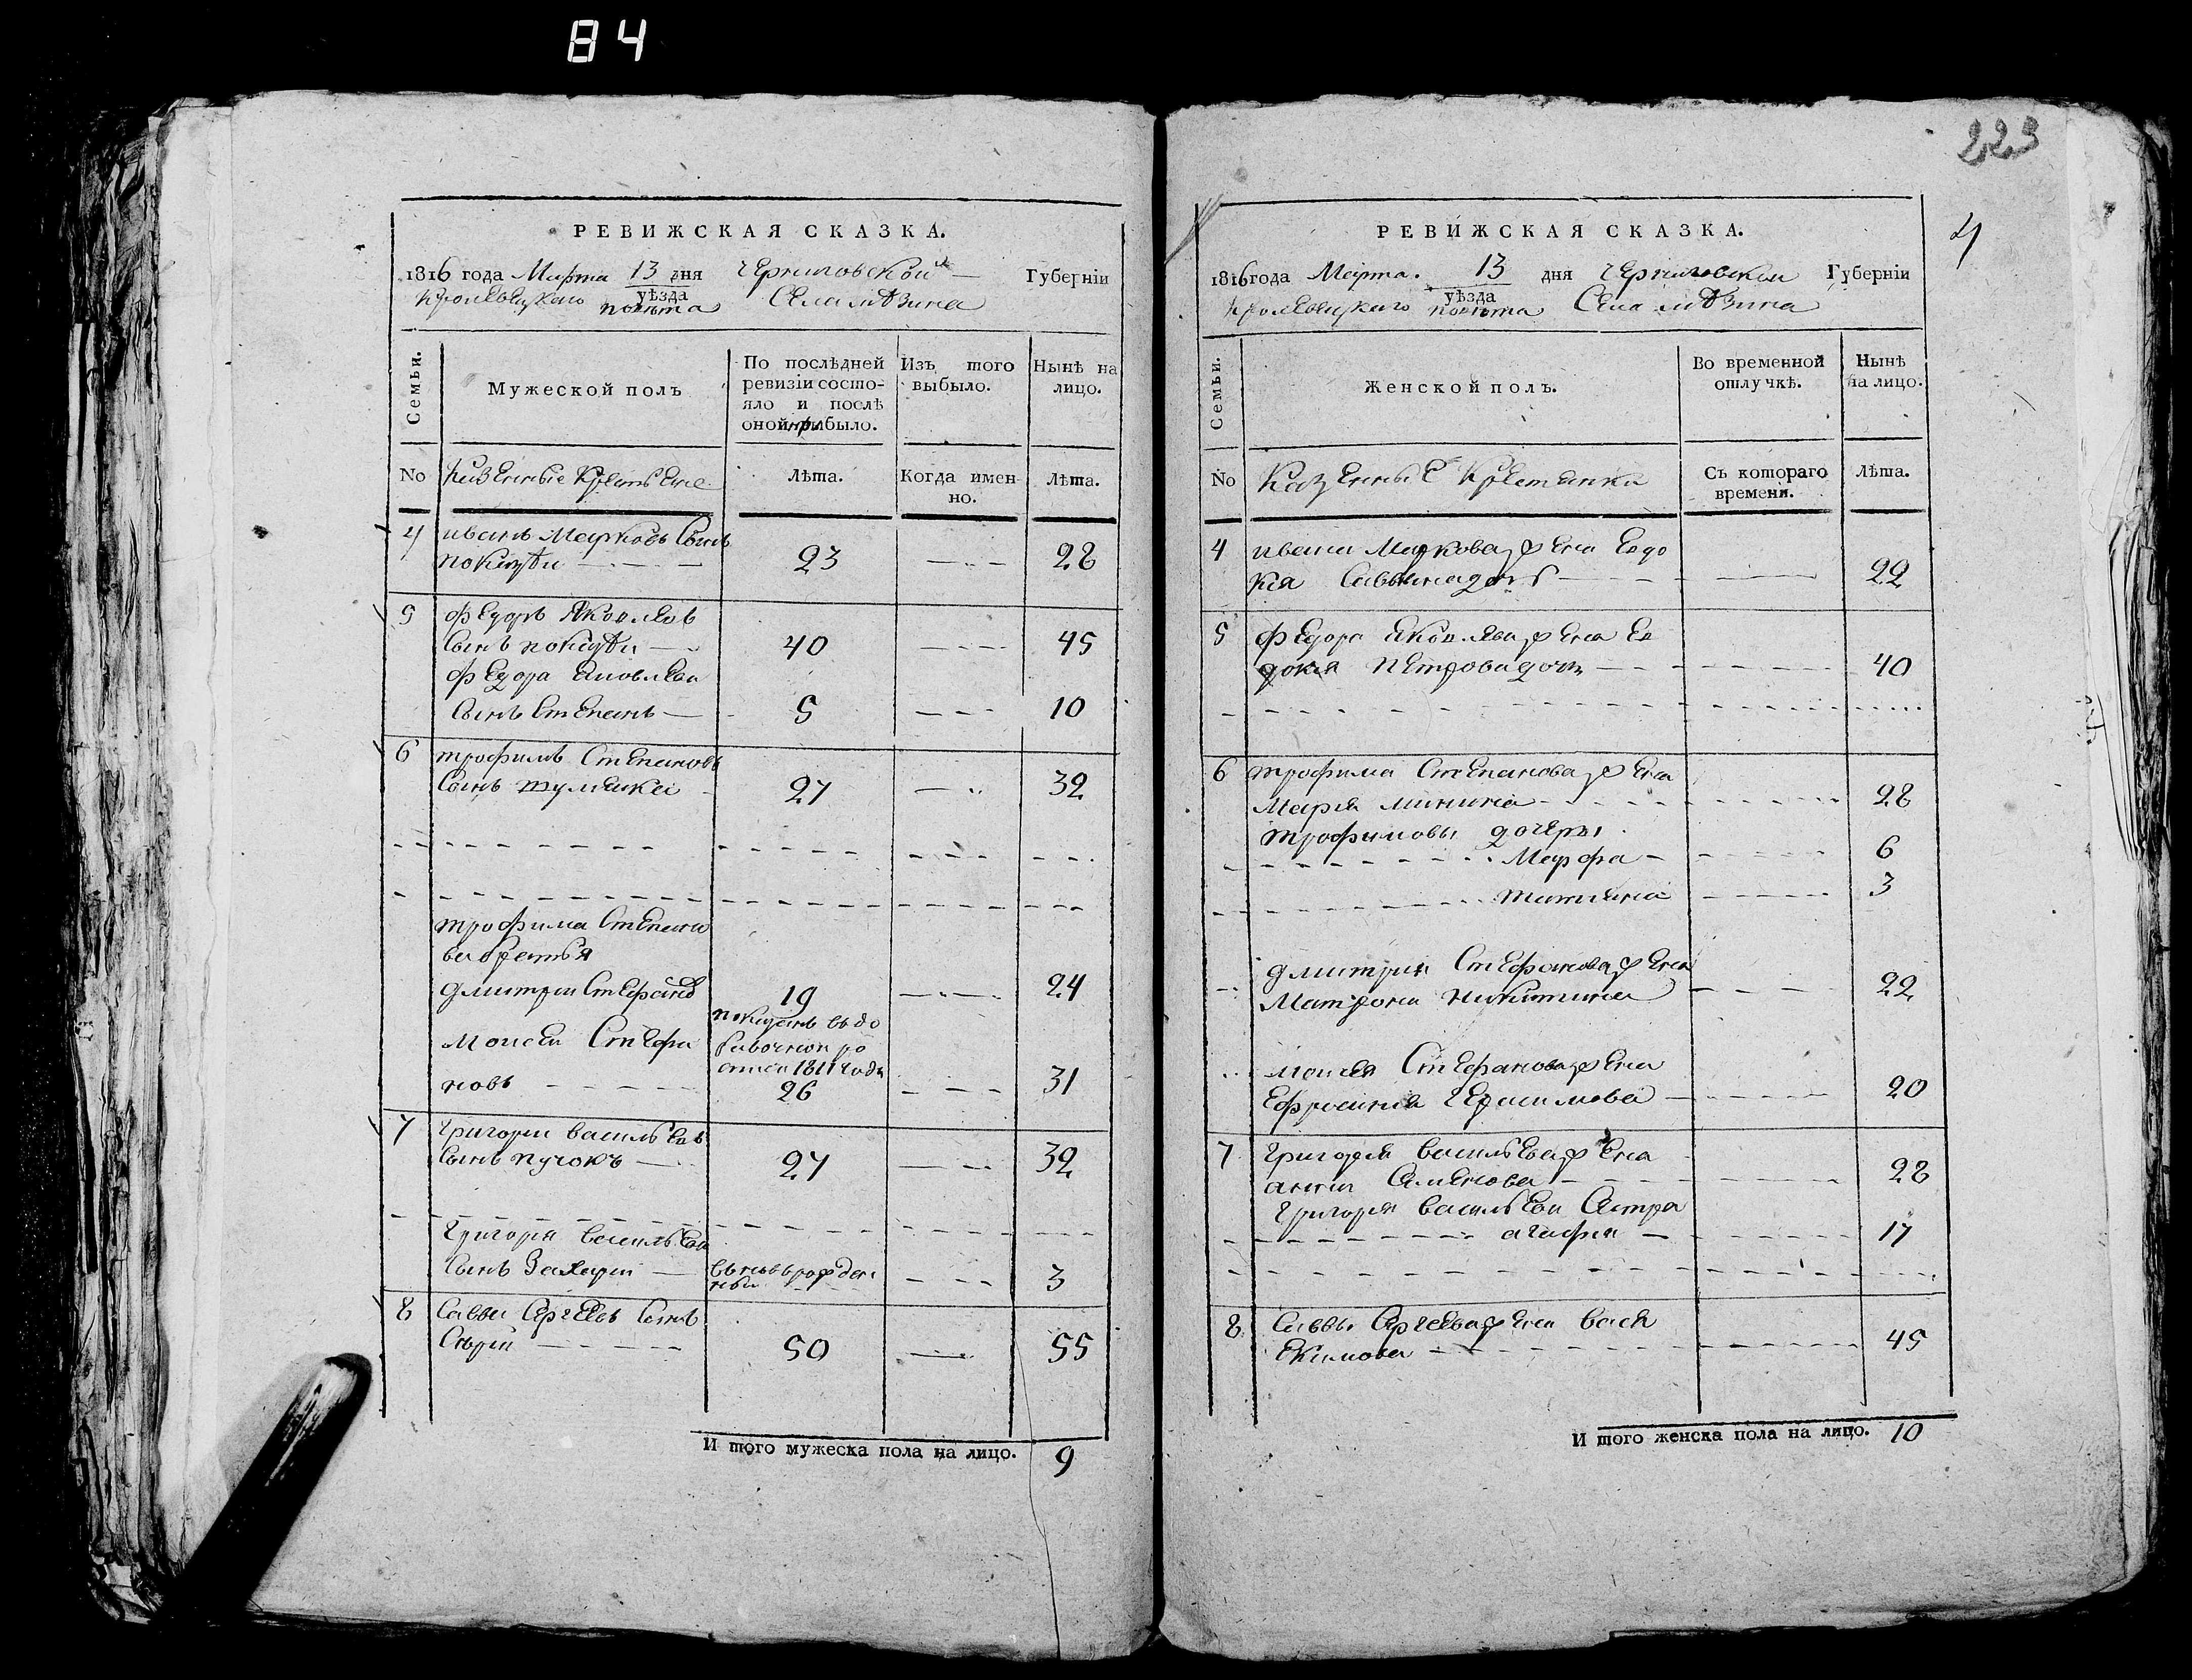 84
223
4
РЕВИЖСКАЯ СКАЗКА.
1816 года Марта 13 дня Черниговской Губерніи
Кролевецкаго уѣзда повѣта Села мѣзина
Семьи.
Мужеской полъ
По послѣдней ревизіи состо-
яло и послѣ
оной прибыло.
Изъ того выбыло.
Нынѣ на лицо.
No
Казенные Крестьяне
Лѣта.
Когда имен-
но.
Лѣта.
4 иванъ Марковъ Сынъ
23 28
5 федоръ Яковлевъ
Сынъ 40 45
федора Яковлева
Сынъ Степанъ 5 10
6 трофимъ Степановъ
Сынъ 27 32
трофима Степано
ва братья
дмитрии Стефановъ 19 24
Моисеи Стефа
новъ
показанъ въ до
бавочнои ро
списи 1811 года
26 31
7 Григории васильевъ
Сынъ пучокъ 27 32
Григория васильева
Сынъ Захарии вновь рожден
ныи 3
8 Савва Сергеевъ Сынъ
Сѣрии 50 55
И того мужеска пола на лицо. 9
РЕВИЖСКАЯ СКАЗКА.
1816 года Марта. 13 дня Черниговскои Губерніи
Кролевецкаго уѣзда повѣта Села мѣзина
Семьи.
Женской полъ.
Во временной
отлучкѣ.
Нынѣ
на лицо.
No
Казенные Крестянки
Съ котораго
времени.
Лѣта.
4 ивана Маркова жена Евдо
кия Саввина дочь 22
5 федора яковлева жена Ев
докия петрова дочь 40
6 трофима Степанова жена
Мария минина 28
трофимовы дочеры
Марфа 6
татияна 3
дмитрия Стефанова жена
Матрона никитина 22
моисея Стефанова жена
Ефросиния герасимова 20
7 Григория васильева жена
анна Семенова 28
Григория васильева Сестра
агафия 17
8 Саввы Сергеева жена васа
Екимова 45
И того женска пола на лицо. 10